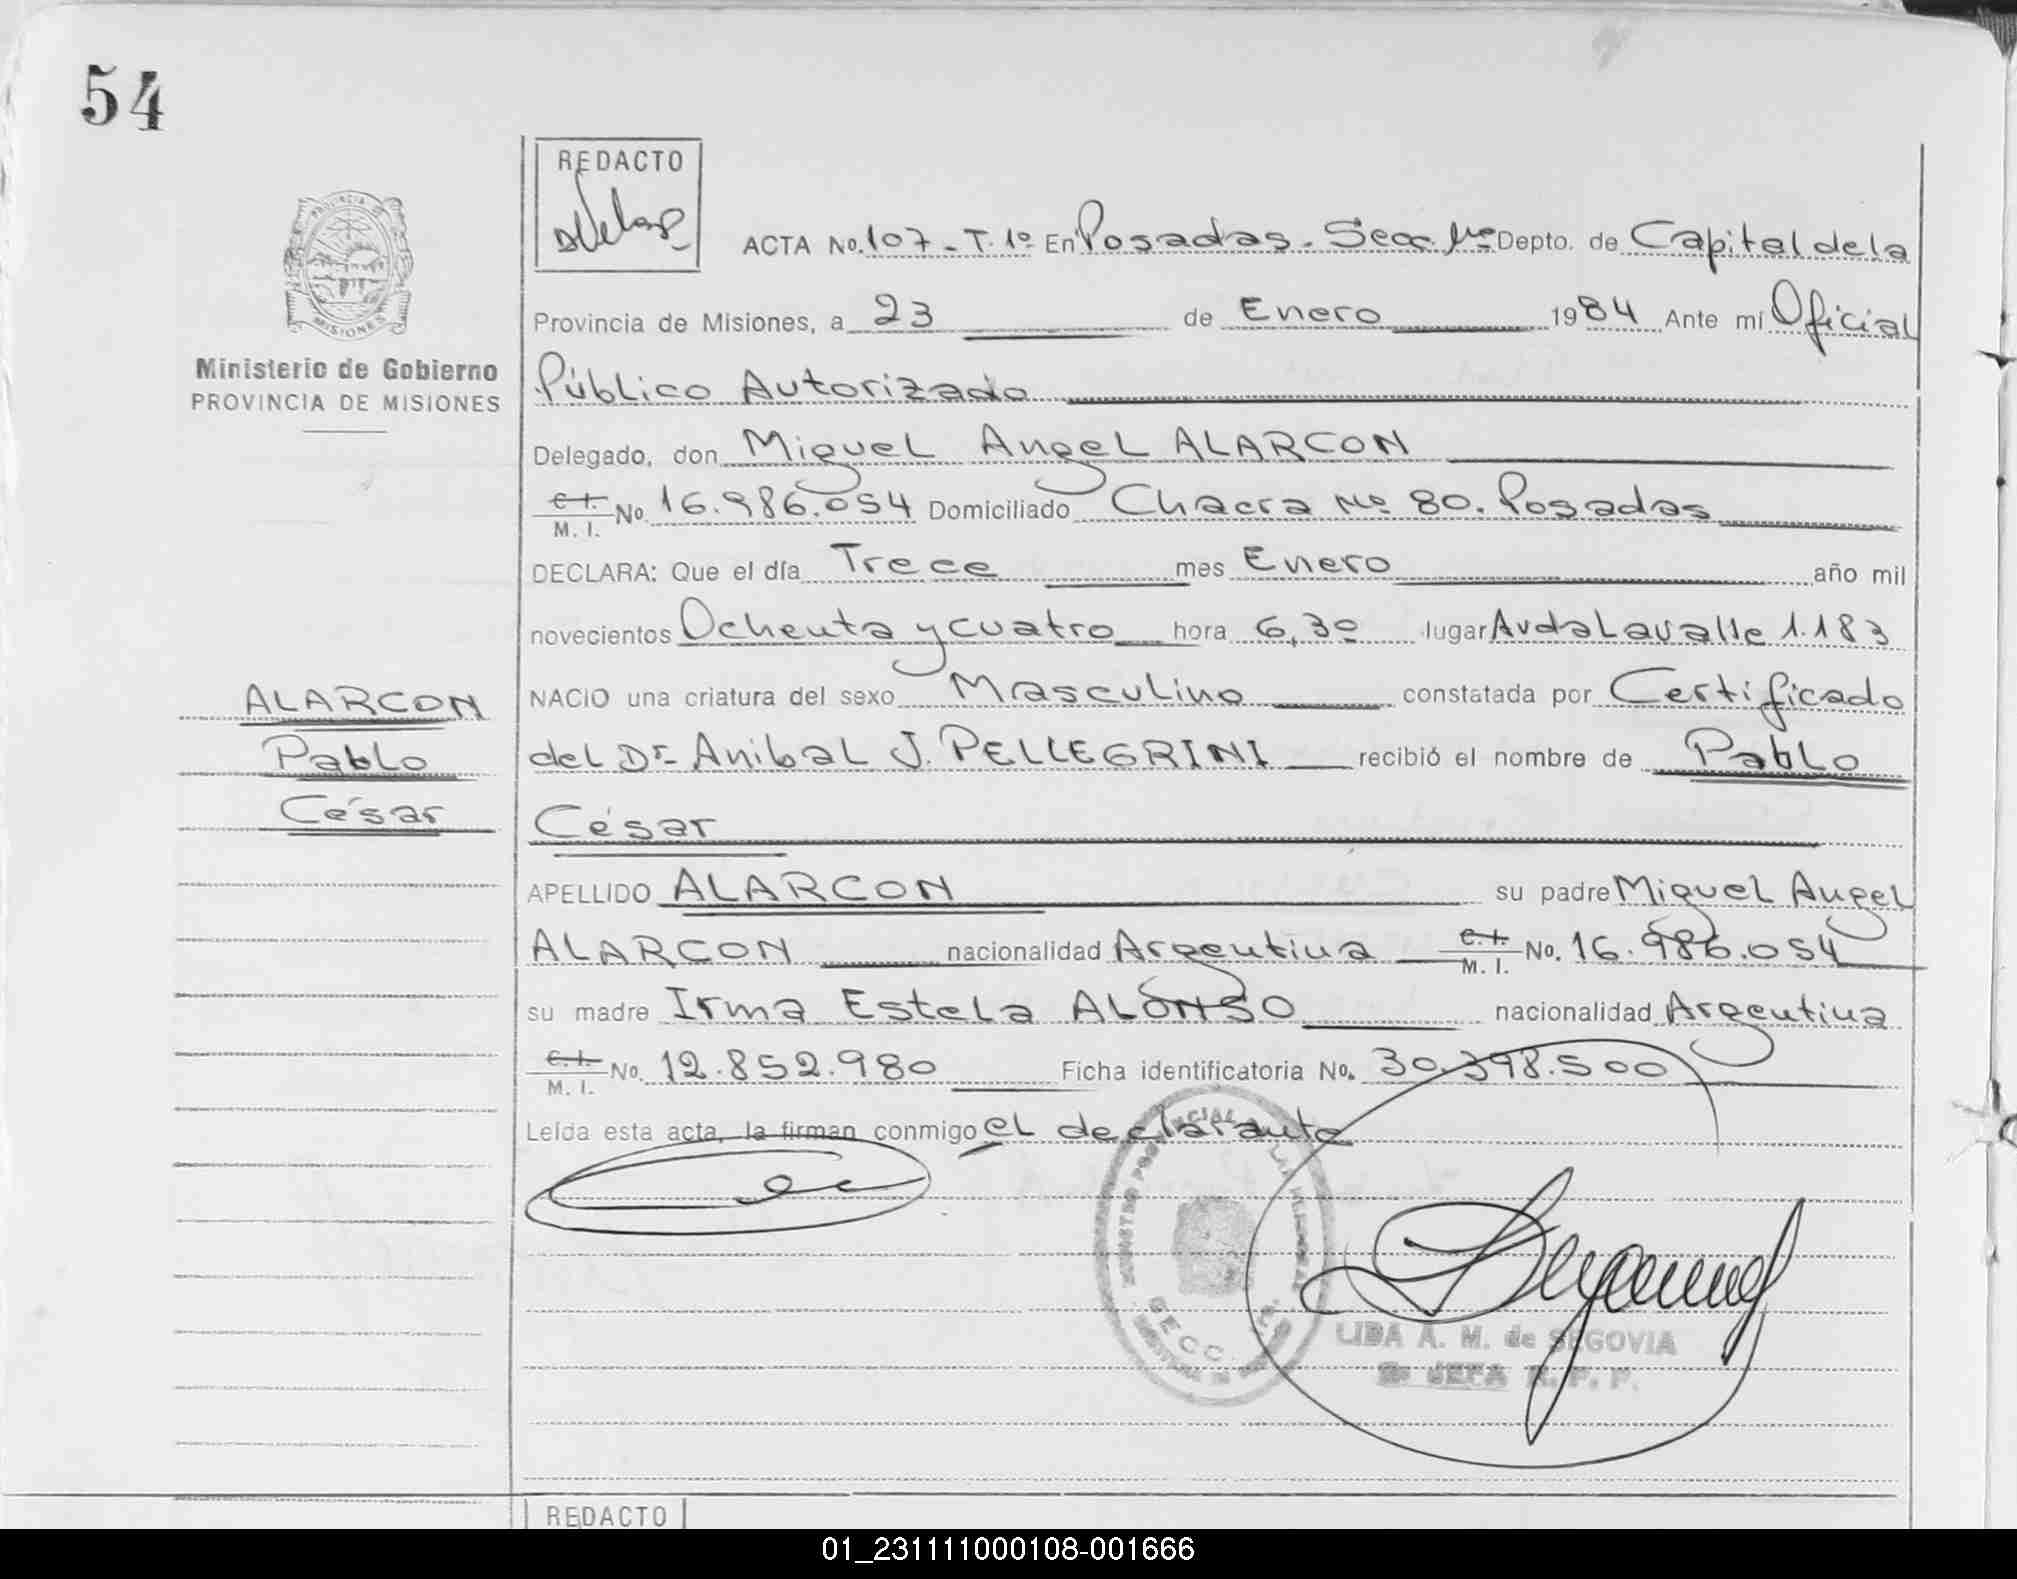 54
REDACTO
PROVINCIA DE
MISIONES
Ministerio de Gobierno
PROVINCIA DE MISIONES
ALARCON
Pablo
César
ACTA No. 107 - T. 1º En Posadas - Secc. 1ra Depto. de Capital de la
Provincia de Misiones, a 23 de Enero 1984 Ante mi Oficial
Público Autorizado
Delegado, don Miguel Angel ALARCON
C. I.
M. I. No. 16.986.054 Domiciliado Chacra Nº 80. Posadas
DECLARA: Que el día Trece mes Enero año mil
novecientos Ochenta y cuatro hora 6,30 lugar Avda Lavalle 1.183
NACIO una criatura del sexo Masculino constatada por Certificado
del Dr Anibal J. PELLEGRINI recibió el nombre de Pablo
César
APELLIDO ALARCON su padre Miguel Angel
ALARCON nacionalidad Argentina C. I. M. I. No. 16.986.054
su madre Irma Estela ALONSO nacionalidad Argentina
C. I.
M. I. No. 12.852.980 Ficha identificatoria No. 30.398.500
Leída esta acta, la firman conmigo el declarante
SECC.
LIDA A. M. de SEGOVIA
JEFA R. P. P.
REDACTO
01_231111000108-001666